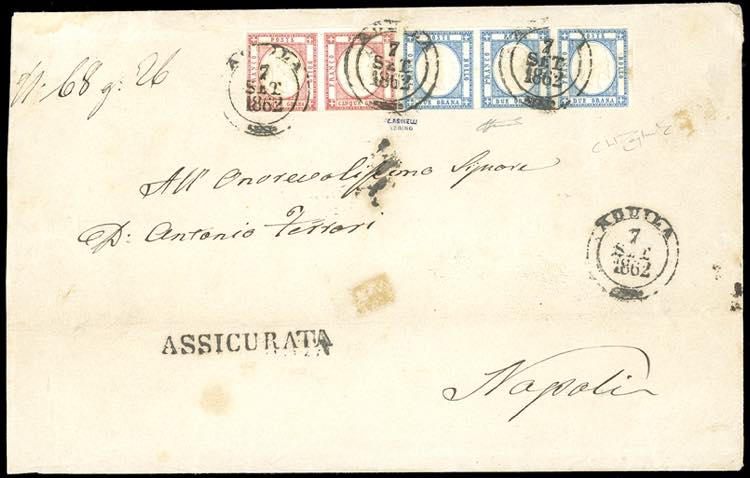 POSTE POSTE POSTE POSTE POSTE
FRANCO BOLLO FRANCO BOLLO FRANCO BOLLO FRANCO BOLLO FRANCO BOLLO
CINQUE GRANA DUE GRANA DUE GRANA DUE GRANA
AQUILA
7
SET
1862
AQUILA
7
SET
1862
AQUILA
7
SET
1862
N: 68 g: 26
All' Onorevolissimo Signore
D: Antonio Ferrari
AQUILA
7
SET
1862
ASSICURATA
Napoli